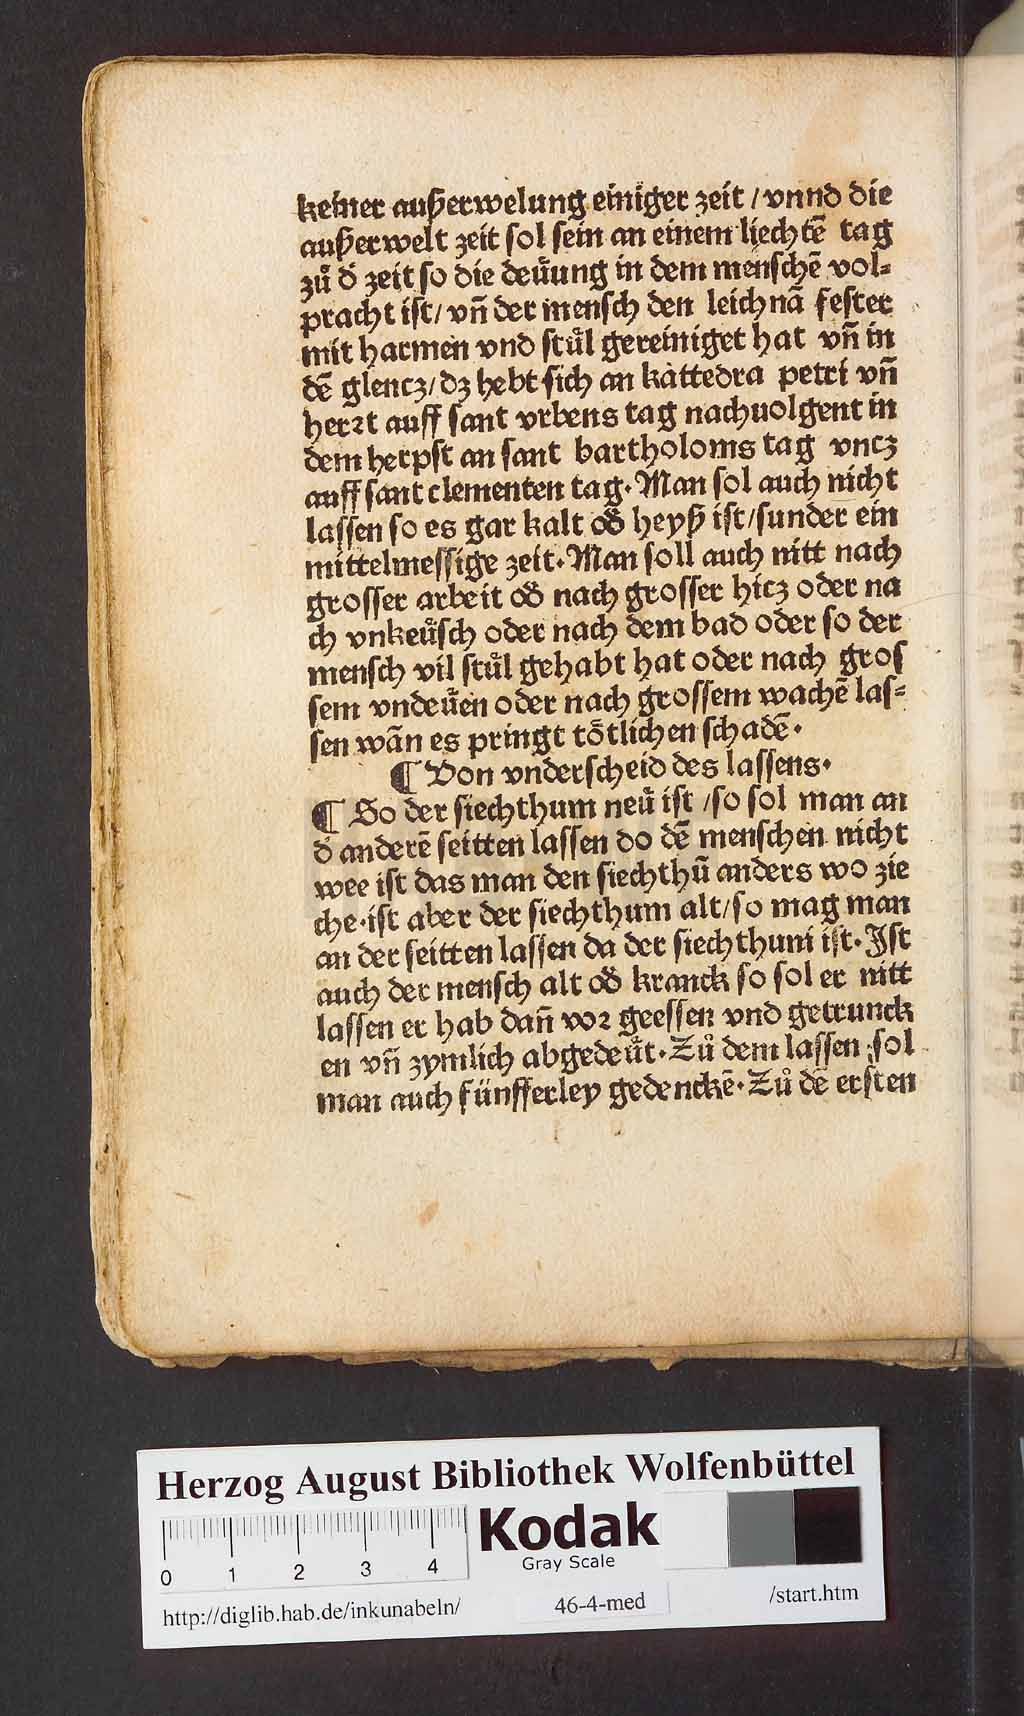 keiner außerwelung einiger zeit / vnnd die
außerwelt zeit sol sein an einem liechtē tag
zuͦ dͤ zeit so die deuͤung in dem menschē vol⸗
pracht ist / vn̄ der mensch den leichnā fester
mit harmen vnd stuͤl gereiniget hat vn̄ in
dē glencz / dz hebt sich an kattedra petri vn̄
herꝛt auff sant vrbens tag nachuolgent in
dem herpst an sant bartholoms tag vncz
auff sant clementen tag. Man sol auch nicht
lassen so es gar kalt od̓ heyß ist / sunder ein
mittelmessige zeit. Man soll auch nitt nach
grosser arbeit od̓ nach grosser hicz oder na
ch vnkeuͤsch oder nach dem bad oder so der
mensch vil stuͤl gehabt hat oder nach gros
sem vndeuͤen oder nach grossem wachē las⸗
sen wān es pringt toͤtlichen schadē.
¶ Von vnderscheid des lassens.
¶ So der siechthum neuͤ ist / so sol man an
d̓ anderē seitten lassen do dē menschen nicht
wee ist das man den siechthū anders wo zie
che. ist aber der siechthum alt / so mag man
an der seitten lassen da der siechthum ist. Ist
auch der mensch alt od̓ kranck so sol er nitt
lassen er hab dan̄ voꝛ geessen vnd getrunck
en vn̄ zymlich abgedeuͤt. Zuͦ dem lassen sol
man auch fünfferley gedenckē. Zuͦ dē ersten
Herzog August Bibliothek Wolfenbüttel
Kodak
Gray Scale
0 1 2 3 4
http://diglib.hab.de/inkunabeln/ 46-4-med /start.htm